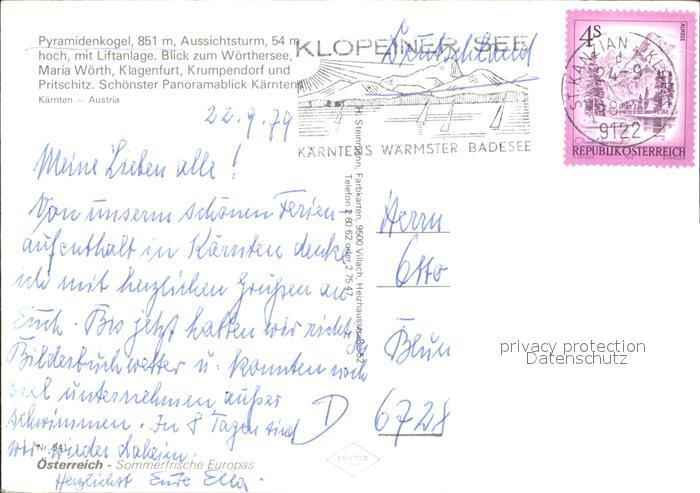 Pyramidenkogel, 851 m, Aussichtsturm, 54 m
hoch, mit Liftanlage. Blick zum Wörthersee,
Maria Wörth, Klagenfurt, Krumpendorf und
Pritschitz. Schönster Panoramablick Kärntens
Kärnten – Austria
22.9.79
Meine Lieben alle!
Von unserm schönen Ferien-
aufenthalt in Kärnten denke
ich mit herzlichen Grüßen an
Euch. Bis jetzt hatten wir richtig
Bilderbuchwetter u. konnten noch
viel unternehmen außer
schwimmen. In 8 Tagen sind
wir wieder daheim.
Herzlichst Eure Ella.
Nr. 541
Österreich - Sommerfrische Europas
KLOPEINER SEE
KÄRNTENS WÄRMSTER BADESEE
Deutschland
H. Steinmann, Farbkarten, 9500 Villach, Heizhausstraße 52
Telefon 2 80 62 oder 2 75 47
4S
ALMSEE
ST. KANZIAN
9122
REPUBLIK ÖSTERREICH
Herrn
Otto
D 6728
privacy protection
Datenschutz